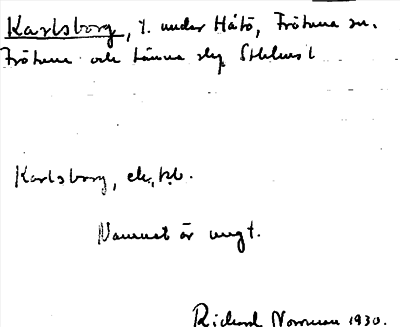 Karlsborg, l. under Håtö, Frötuna sn.
Frötuna och Länna skg Sthlms l
Karlsborg, ek, kb.
Namnet är ungt.
Richard Norrman 1930.